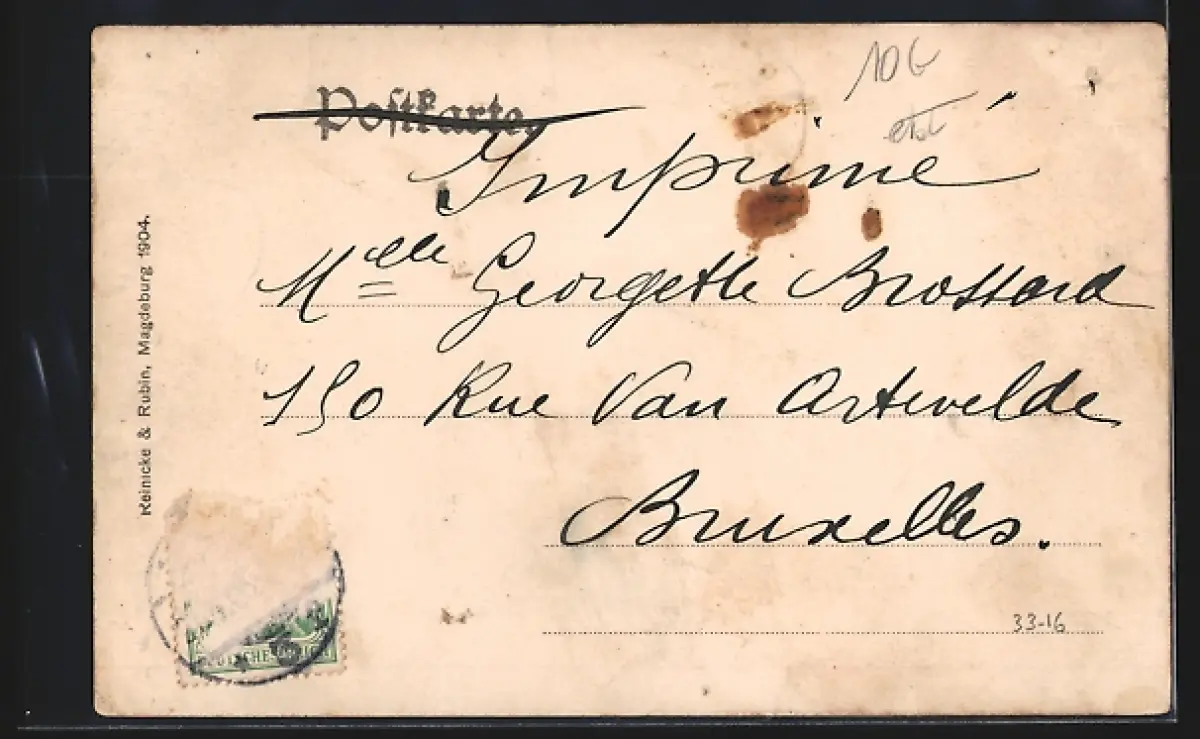 10 €
Postkarte
Imprimé
Melle Georgette Brossard
150 Rue Van Artevelde
Bruxelles.
33-16
Reinicke & Rubin, Magdeburg 1904.